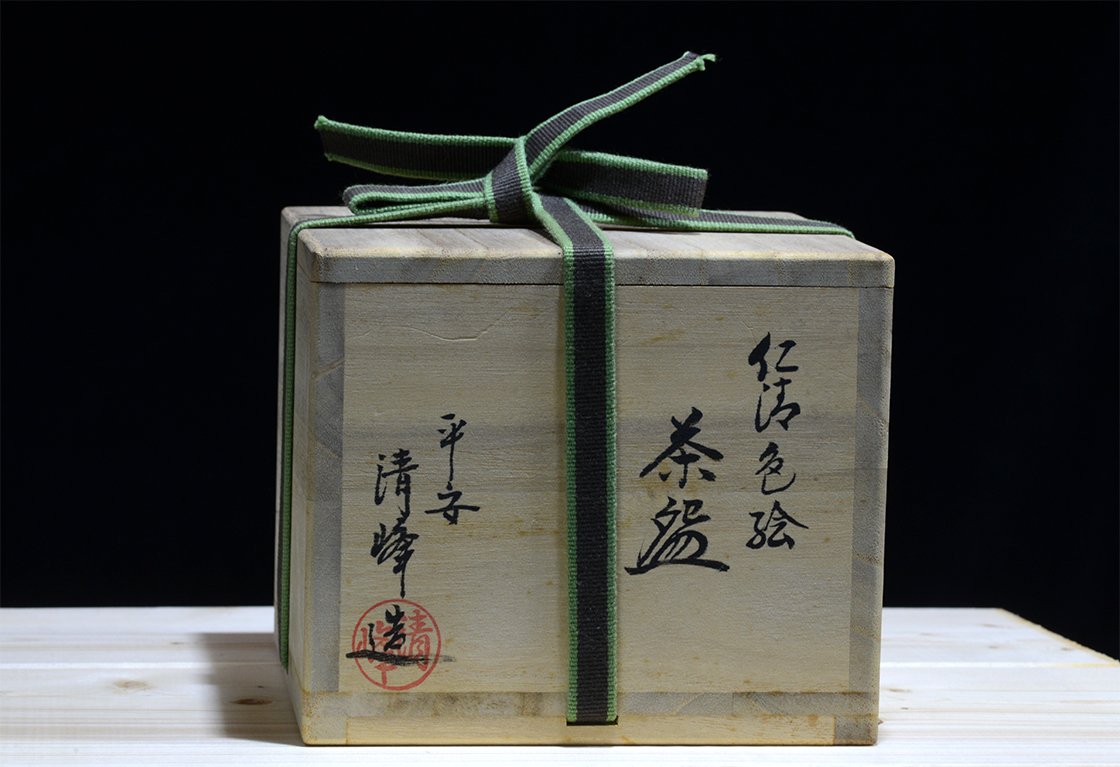 仁清色絵
茶盌
平安
清峰造
清峰